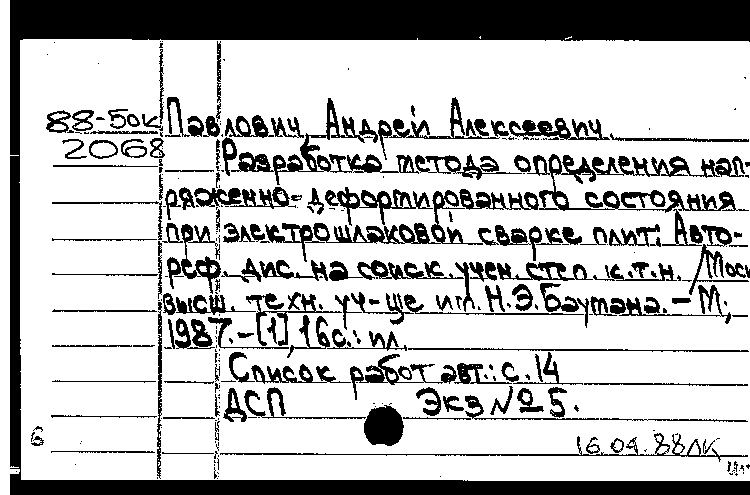 88-50к Павлович, Андрей Алексеевич.
2068 Разработка метода определения нап-
ряженно-деформированного состояния
при электрошлаковой сварке плит: Авто-
реф. дис. на соиск. учен. степ. к.т.н. / Моск
высш. техн. уч-ще им. Н.Э.Баумана. – М;
1987. – [1], 16с.: ил.
Список работ авт.: с. 14
ДСП Экз № 5.
6
16.04.88ЛК